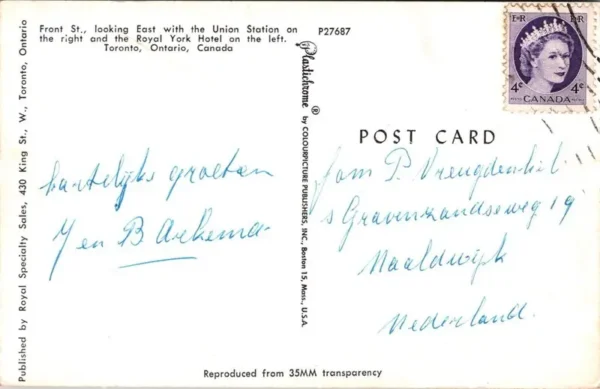 Front St., looking East with the Union Station on
the right and the Royal York Hotel on the left.
Toronto, Ontario, Canada
P27687
E R
E R
4¢
4¢
CANADA
POST CARD
Published by Royal Specialty Sales, 430 King St., W., Toronto, Ontario
Plastichrome ® by COLOURPICTURE PUBLISHERS, INC., Boston 15, Mass., U.S.A.
hartelijks groeten
J en B Arkema
fam P. Vreugdenhil
s Gravenzandseweg 19
Naaldwijk
Nederland.
Reproduced from 35MM transparency